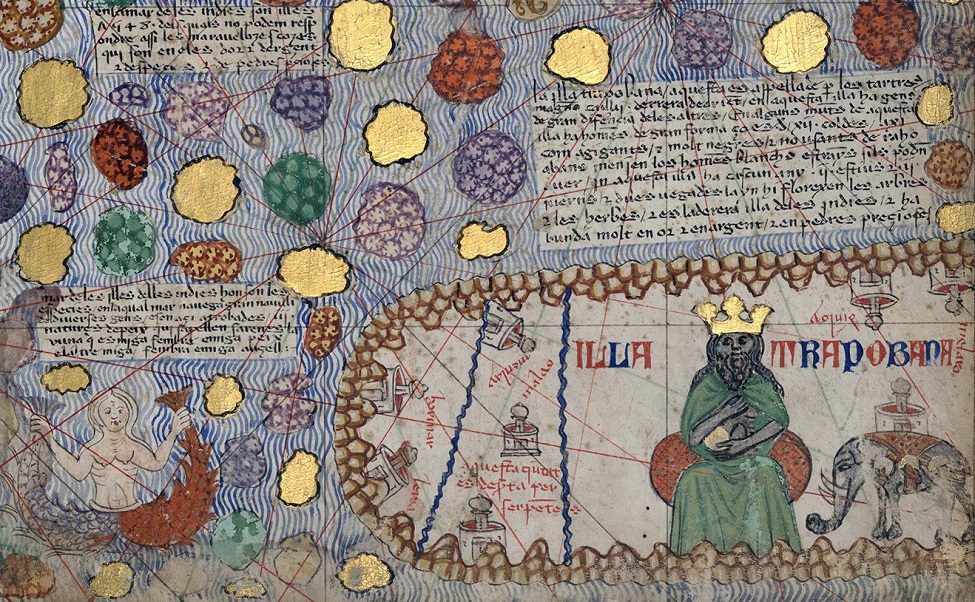 en la mar de les indies son illes
7548 de les quals no podem resp
ondre assi les maravelloses cozes
qui son en eles dor z dergent
z despecies z de pedres precioses
la illa trapobana / aquesta es appellade per los tartres
magno caulij derrera de orient / en aquesta illa ha gens
de gran diferencia de les altres / En alguns munts de aquesta
illa ha homens de gran forma ço es de .xij. coldes / axi
com agigants / z molt negres / z no usants de raho
abans menjen los homens blanchs estranys sils poden
aver / in aquesta illa ha cascun any .ij. estius z .ij.
iuerns / z dues vegades layn hi florexen los arbres
z les herbes / z es la derrera illa deles indies / z ha
bunda molt en or z en argent / z en pedres precioses
mar de les illes delles indies hon son les
especies / en la qual mar navega gran navili
de diverses gens / e son açi atrobades .iij.
natures de peix qui sapellen sarenes la
vna qui es miga fembra e miga peix
e laltre miga fembra e miga auçell
ILLA TRAPOBANA
malao
aquesta ciutat
es desta per
serpetes